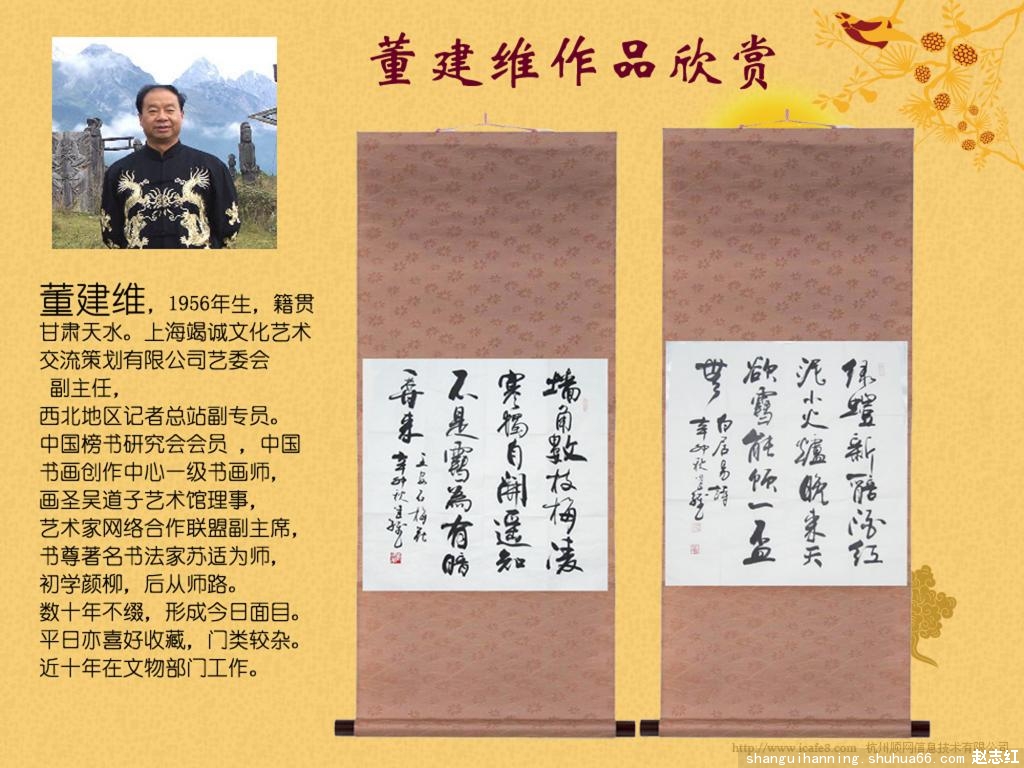 董建维作品欣赏
董建维，1956年生，籍贯
甘肃天水。上海竭诚文化艺术
交流策划有限公司艺委会
副主任，
西北地区记者总站副专员。
中国榜书研究会会员 ，中国
书画创作中心一级书画师，
画圣吴道子艺术馆理事，
艺术家网络合作联盟副主席，
书尊著名书法家苏适为师，
初学颜柳，后从师路。
数十年不缀，形成今日面目。
平日亦喜好收藏，门类较杂。
近十年在文物部门工作。
墙角數枝梅凌
寒獨自開遥知
不是雪為有暗
香来
辛卯秋
绿螘新醅酒红
泥小火爐晚来天
欲雪能饮一盃
無
白居易詩
辛卯秋
http://www.icafe8.com 杭州顺网信息技术有限公司
shanguihanning.shuhua66.com 赵志红